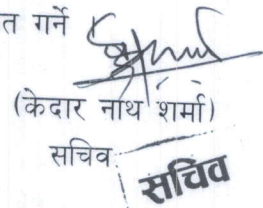 त गर्ने
(केदार नाथ शर्मा)
सचिव
सचिव